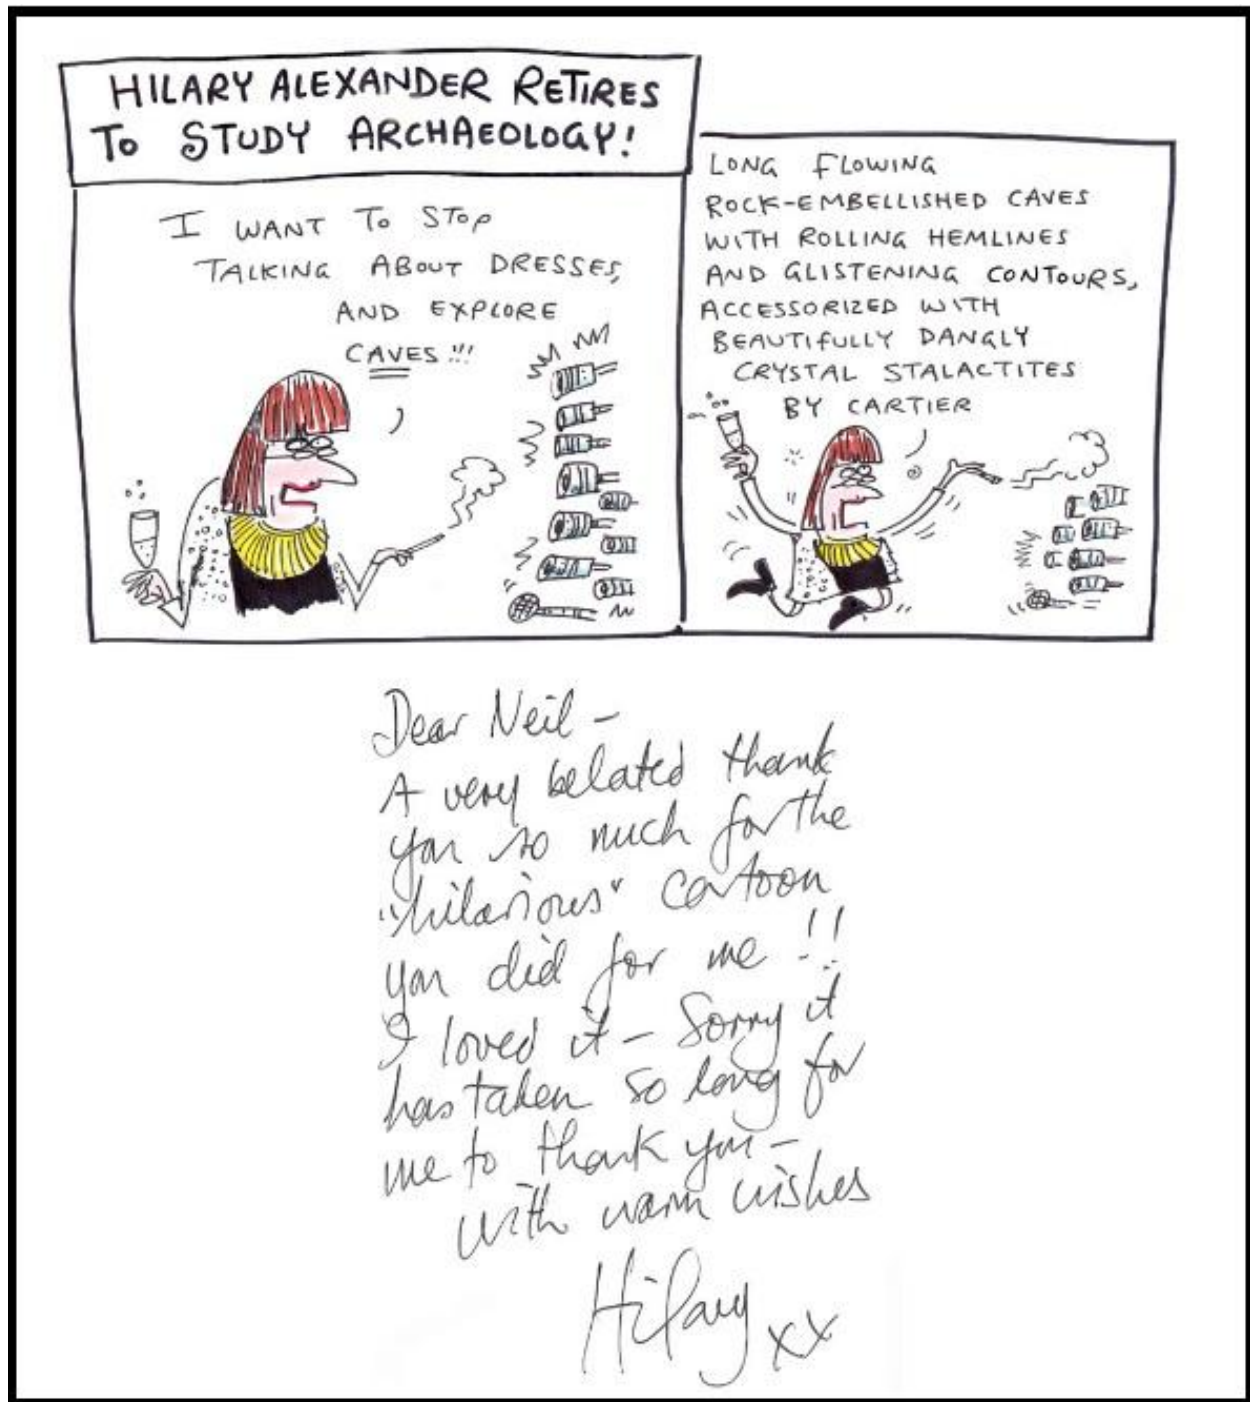 HILARY ALEXANDER RETIRES
TO STUDY ARCHAEOLOGY!
I WANT TO STOP
TALKING ABOUT DRESSES,
AND EXPLORE
CAVES!!!
LONG FLOWING
ROCK-EMBELLISHED CAVES
WITH ROLLING HEMLINES
AND GLISTENING CONTOURS,
ACCESSORIZED WITH
BEAUTIFULLY DANGLY
CRYSTAL STALACTITES
BY CARTIER
Dear Neil –
A very belated thank
you so much for the
"hilarious" cartoon
you did for me !!
I loved it – Sorry it
has taken so long for
me to thank you –
with warm wishes
Hilary xx